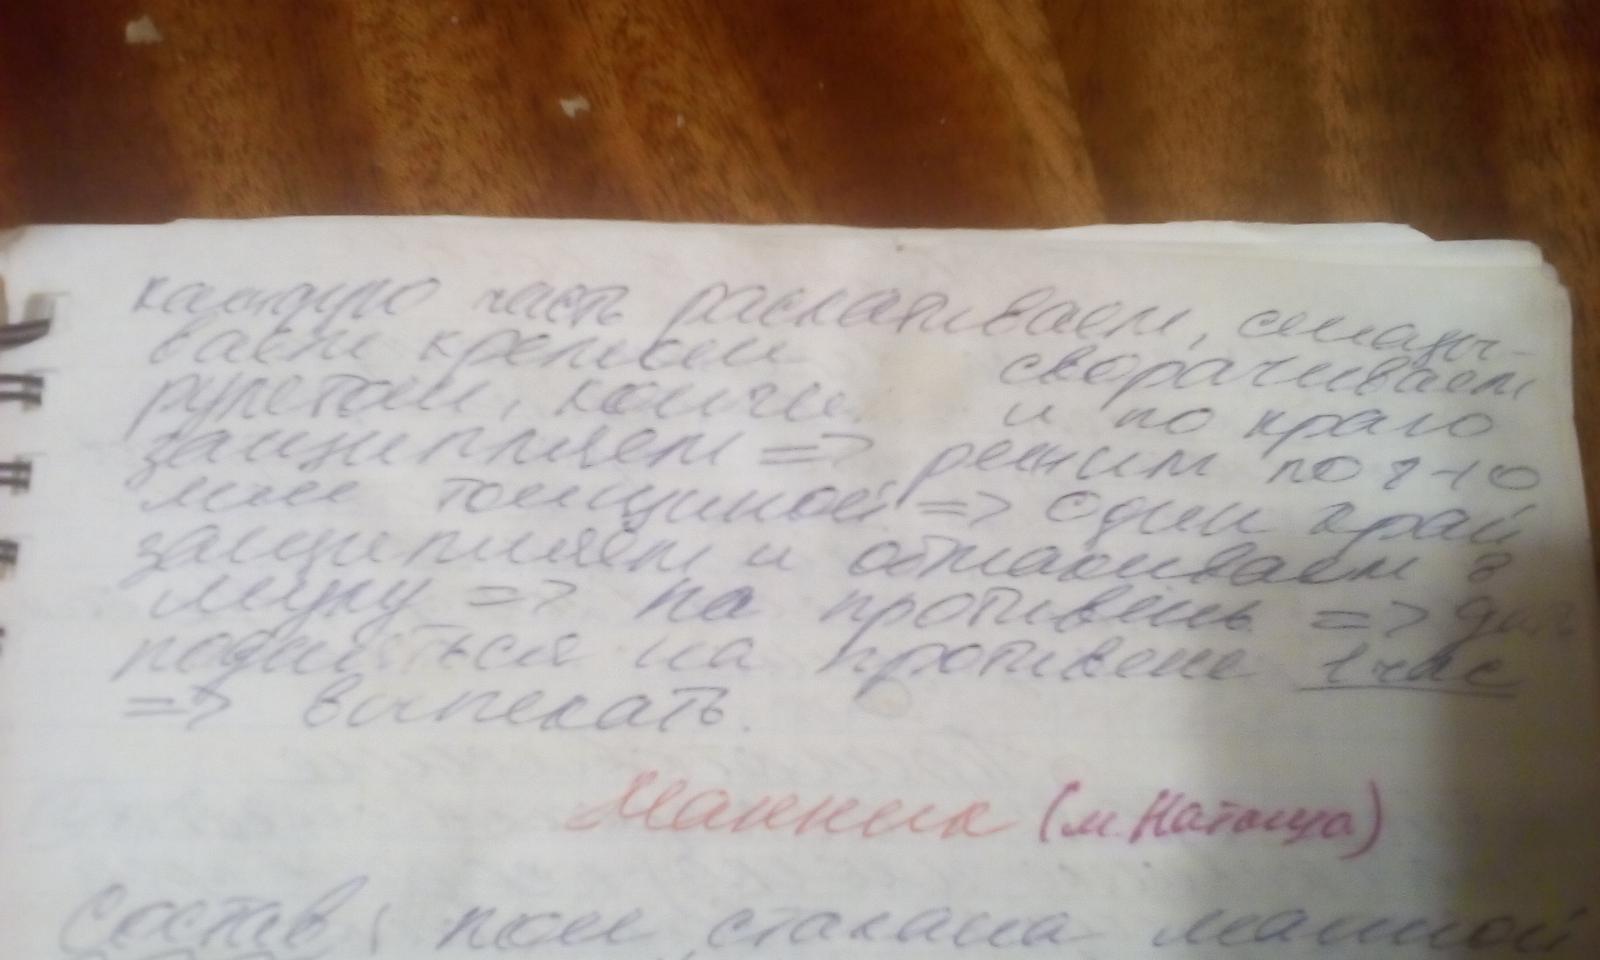 каждую часть раскатываем, смазы-
ваем кремом сворачиваем
рулетом, и по краю
защипляем => режим по 7-10
мм толщиной => один край
защипляем и обмакиваем в
муку => на противень => дать
подняться на противене 1 час
=> выпекать.
Манник (м. Наташа)
Состав: пол стакана манной